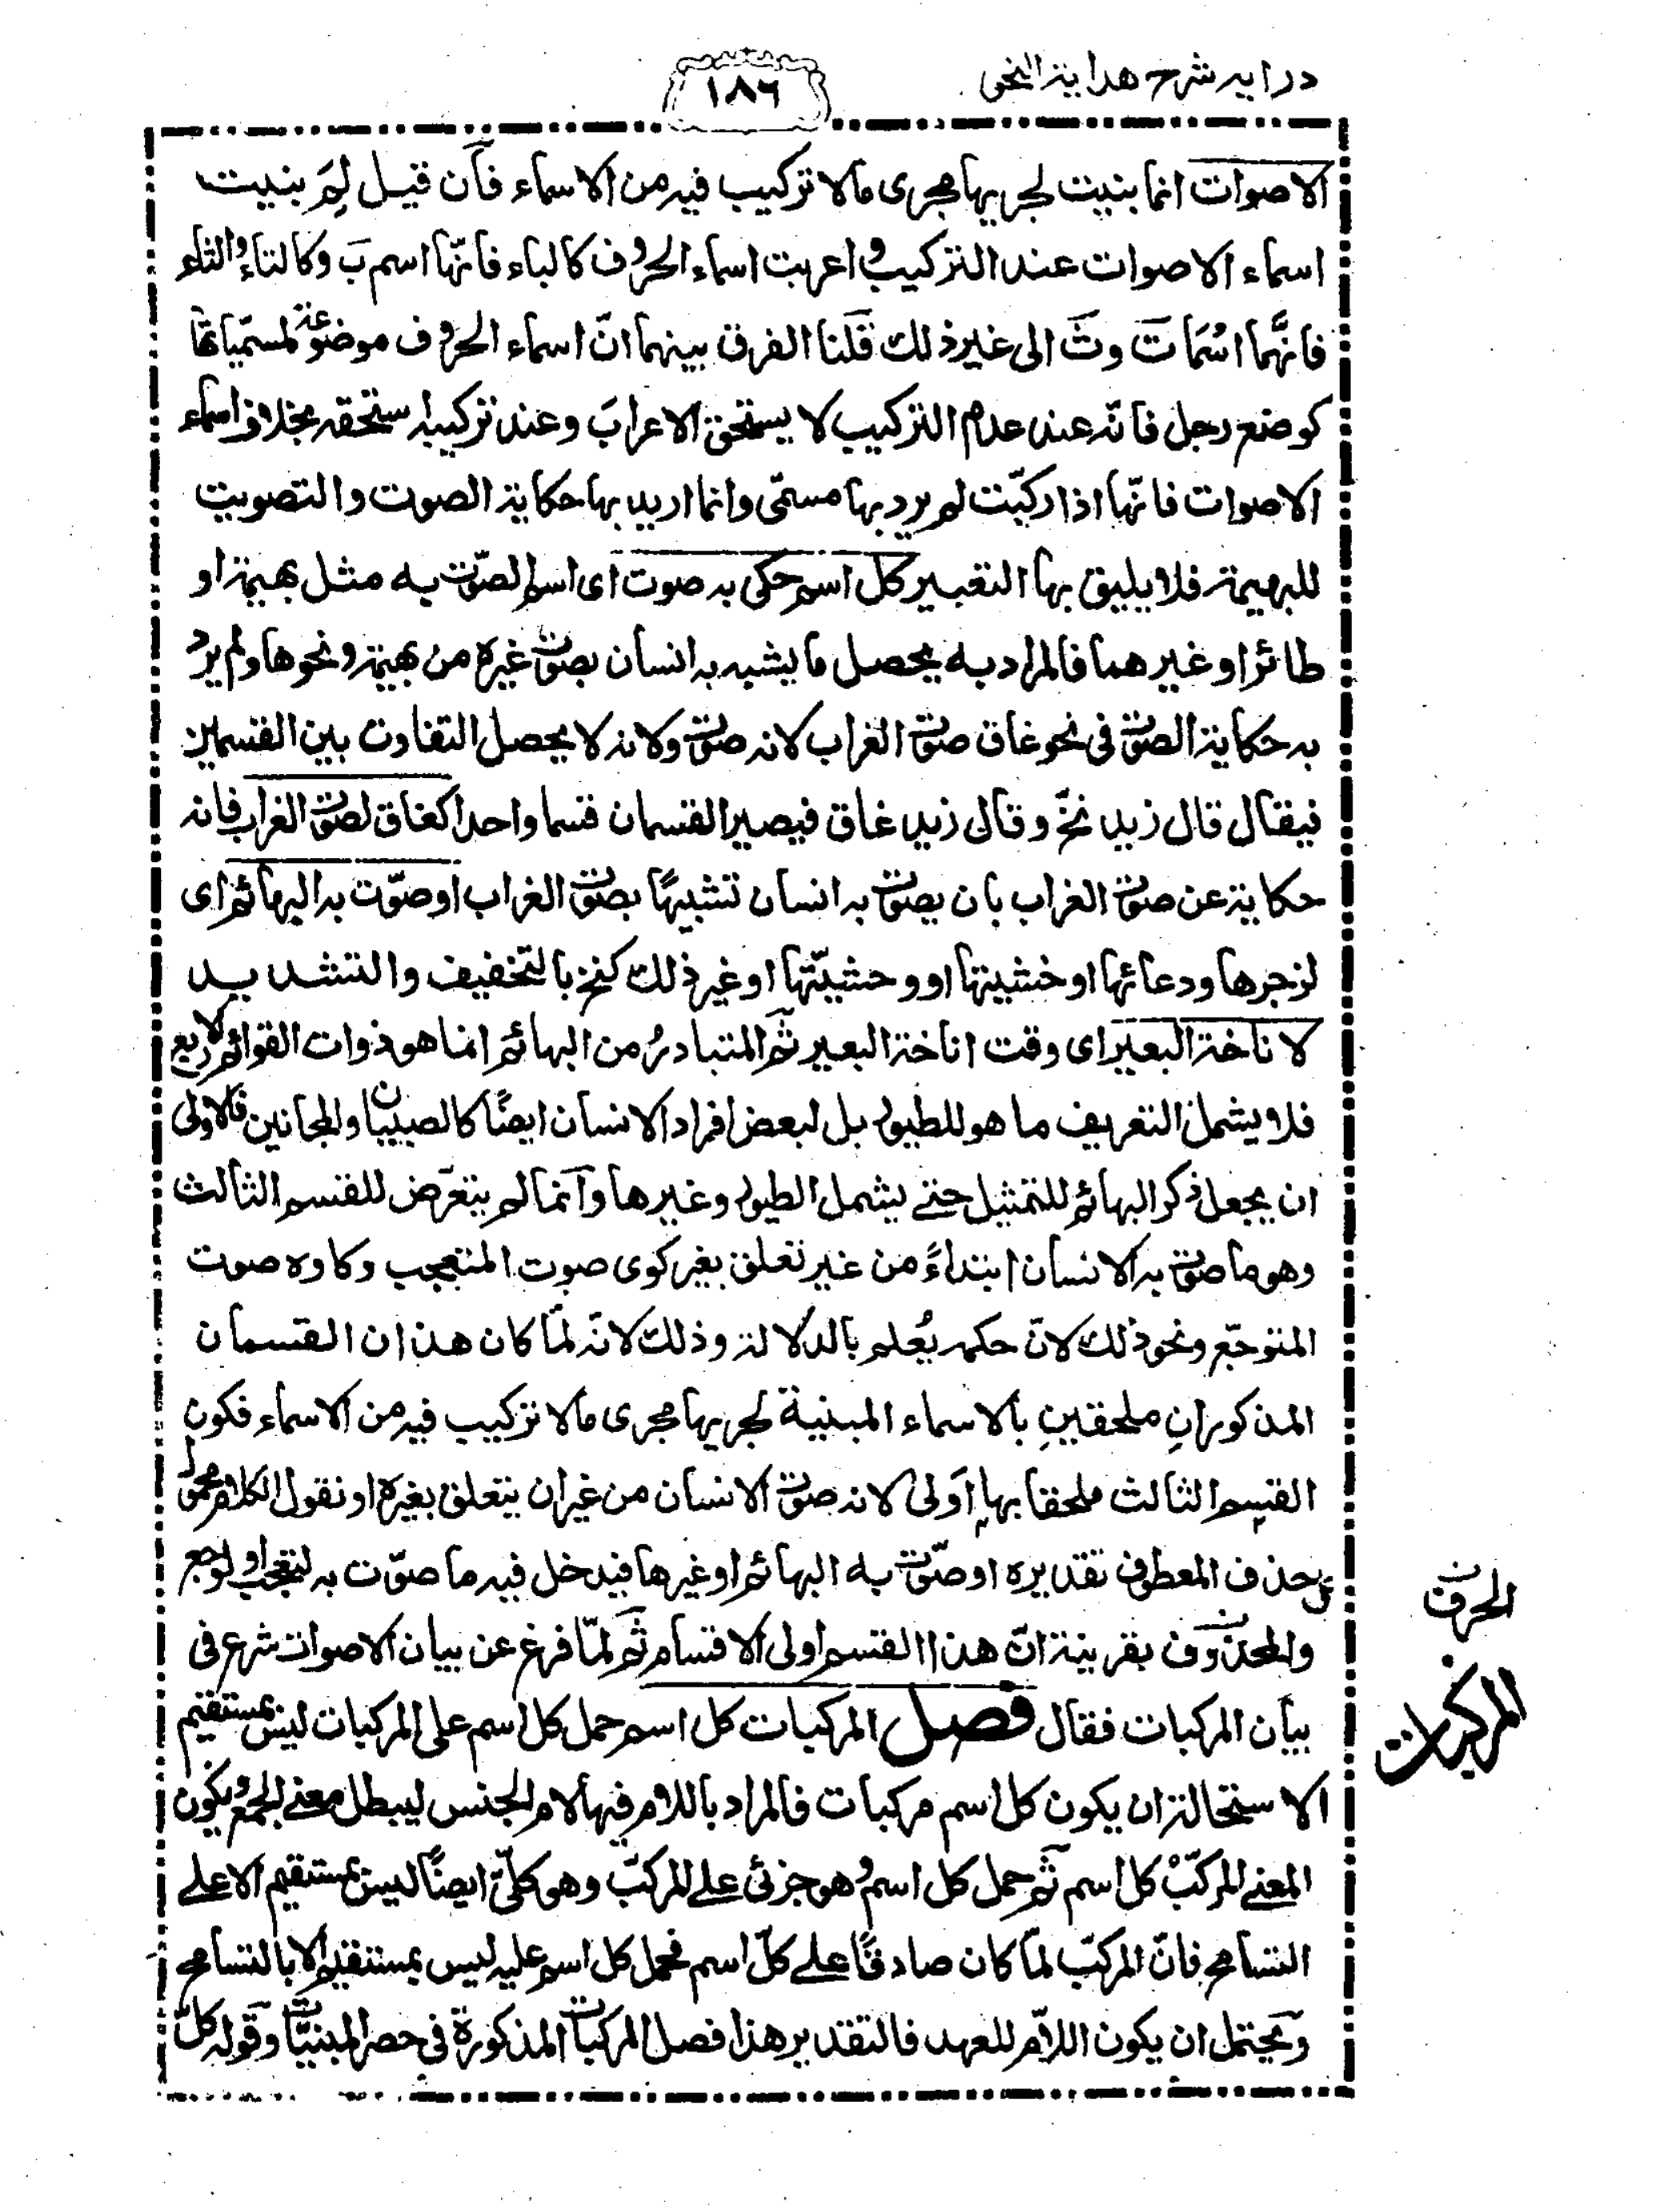 درايه شرح هداية النحو
١٨٦
الاصوات انما بنيت لجريها مجرى مالا تركيب فيه من الاسماء فأن قيل لِمَ بنيت
اسماء الاصوات عند التركيب و اعربت اسماء الحروف كالباء فانّها اسم بَ وكالتاء والثاء
فانَّهما اسْمَا تَ وثَ الى غير ذلك قلنا الفرق بينهما انّ اسماء الحروف موضوعة لمسمّياتها
كوضع رجل فانّه عند عدم التركيب لا يستحق الاعرابَ وعند تركيبه استحقه بخلاف اسماء
الاصوات فانّها اذا ركّبت لم يرد بها مسمّى وانما اريد بها حكاية الصوت والتصويت
للبهيمة فلا يليق بها التغيير كل اسم حكى به صوت اى اسم لصوّت به مثل بهيمة او
طائر او غيرهما فالمراد به يحصل ما يشبه به انسان بصوت غيره من بهيمة ونحوها ولم يرد
به حكاية الصوت فى نحو غاق صوت الغراب لانه صوت ولانه لا يحصل التفاوت بين القسمين
فيقال قال زيد نخّ وقال زيد غاق فيصير القسمان قسما واحدا كغاق لصوت الغراب فانه
حكاية عن صوت الغراب بان يصوت به انسان تشبيهًا بصوت الغراب او صوّت به البهائم اى
لزجرها ودعائها او خشيتها او وحشيّتها او غير ذلك كنخ بالتخفيف والتشديد
لاناخة البعير اى وقت اناخة البعير ثم المتبادرُ من البهائم انما هو ذوات القوائم الاربع
فلا يشمل التعريف ما هو للطيور بل لبعض افراد الانسان ايضًا كالصبيان والمجانين فالاولى
ان يجعل ذكر البهائم للتمثيل حتے يشمل الطيور وغيرها وآنما لم يتعرّض للقسم الثالث
وهو ما صوت به الانسان ابتداءً من غير تعلق بغير كوى صوت المتعجب وكاوه صوت
المتوجّع ونحو ذلك لانّ حكمه يُعلم بالدلالة وذلك لانّه لمّا كان هذان القسمان
المذكورانِ ملحقينِ بالاسماء المبنية لجريها مجرى مالا تركيب فيه من الاسماء فكون
القسم الثالث ملحقا بها اَولى لانه صوت الانسان من غير ان يتعلق بغيره او نقول الكلام محمول
على حذف المعطوف تقديره او صوّت به البهائم او غيرها فيدخل فيه ما صوّت به لتعجب او لوجع
والمحذوف بقرينة انّ هذا القسم اولى الاقسام ثم لمّا فرغ عن بيان الاصوات شرع فى
بيان المركبات فقال فصل المركبات كل اسم حمل كل اسم على المركبات ليس بمستقيم
الاستحالة ان يكون كل اسم مركبات فالمراد باللام فيها لام الجنس ليبطل معنے الجمع ويكون
المعنے المركبُ كل اسم ثم حمل كل اسم وهو جزئى علے المركبّ وهو كلّى ايضًا ليس بمستقيم الا علے
التسامح فانّ المركبّ لمّا كان صادقًا علے كلّ اسم فحمل كل اسم عليه ليس بمستقيم الا بالتسامح
ويحتمل ان يكون اللام للعهد فالتقدير هذا فصل المركبات المذكورة فى حصر المبنيّات وقوله كلّ
المركبات